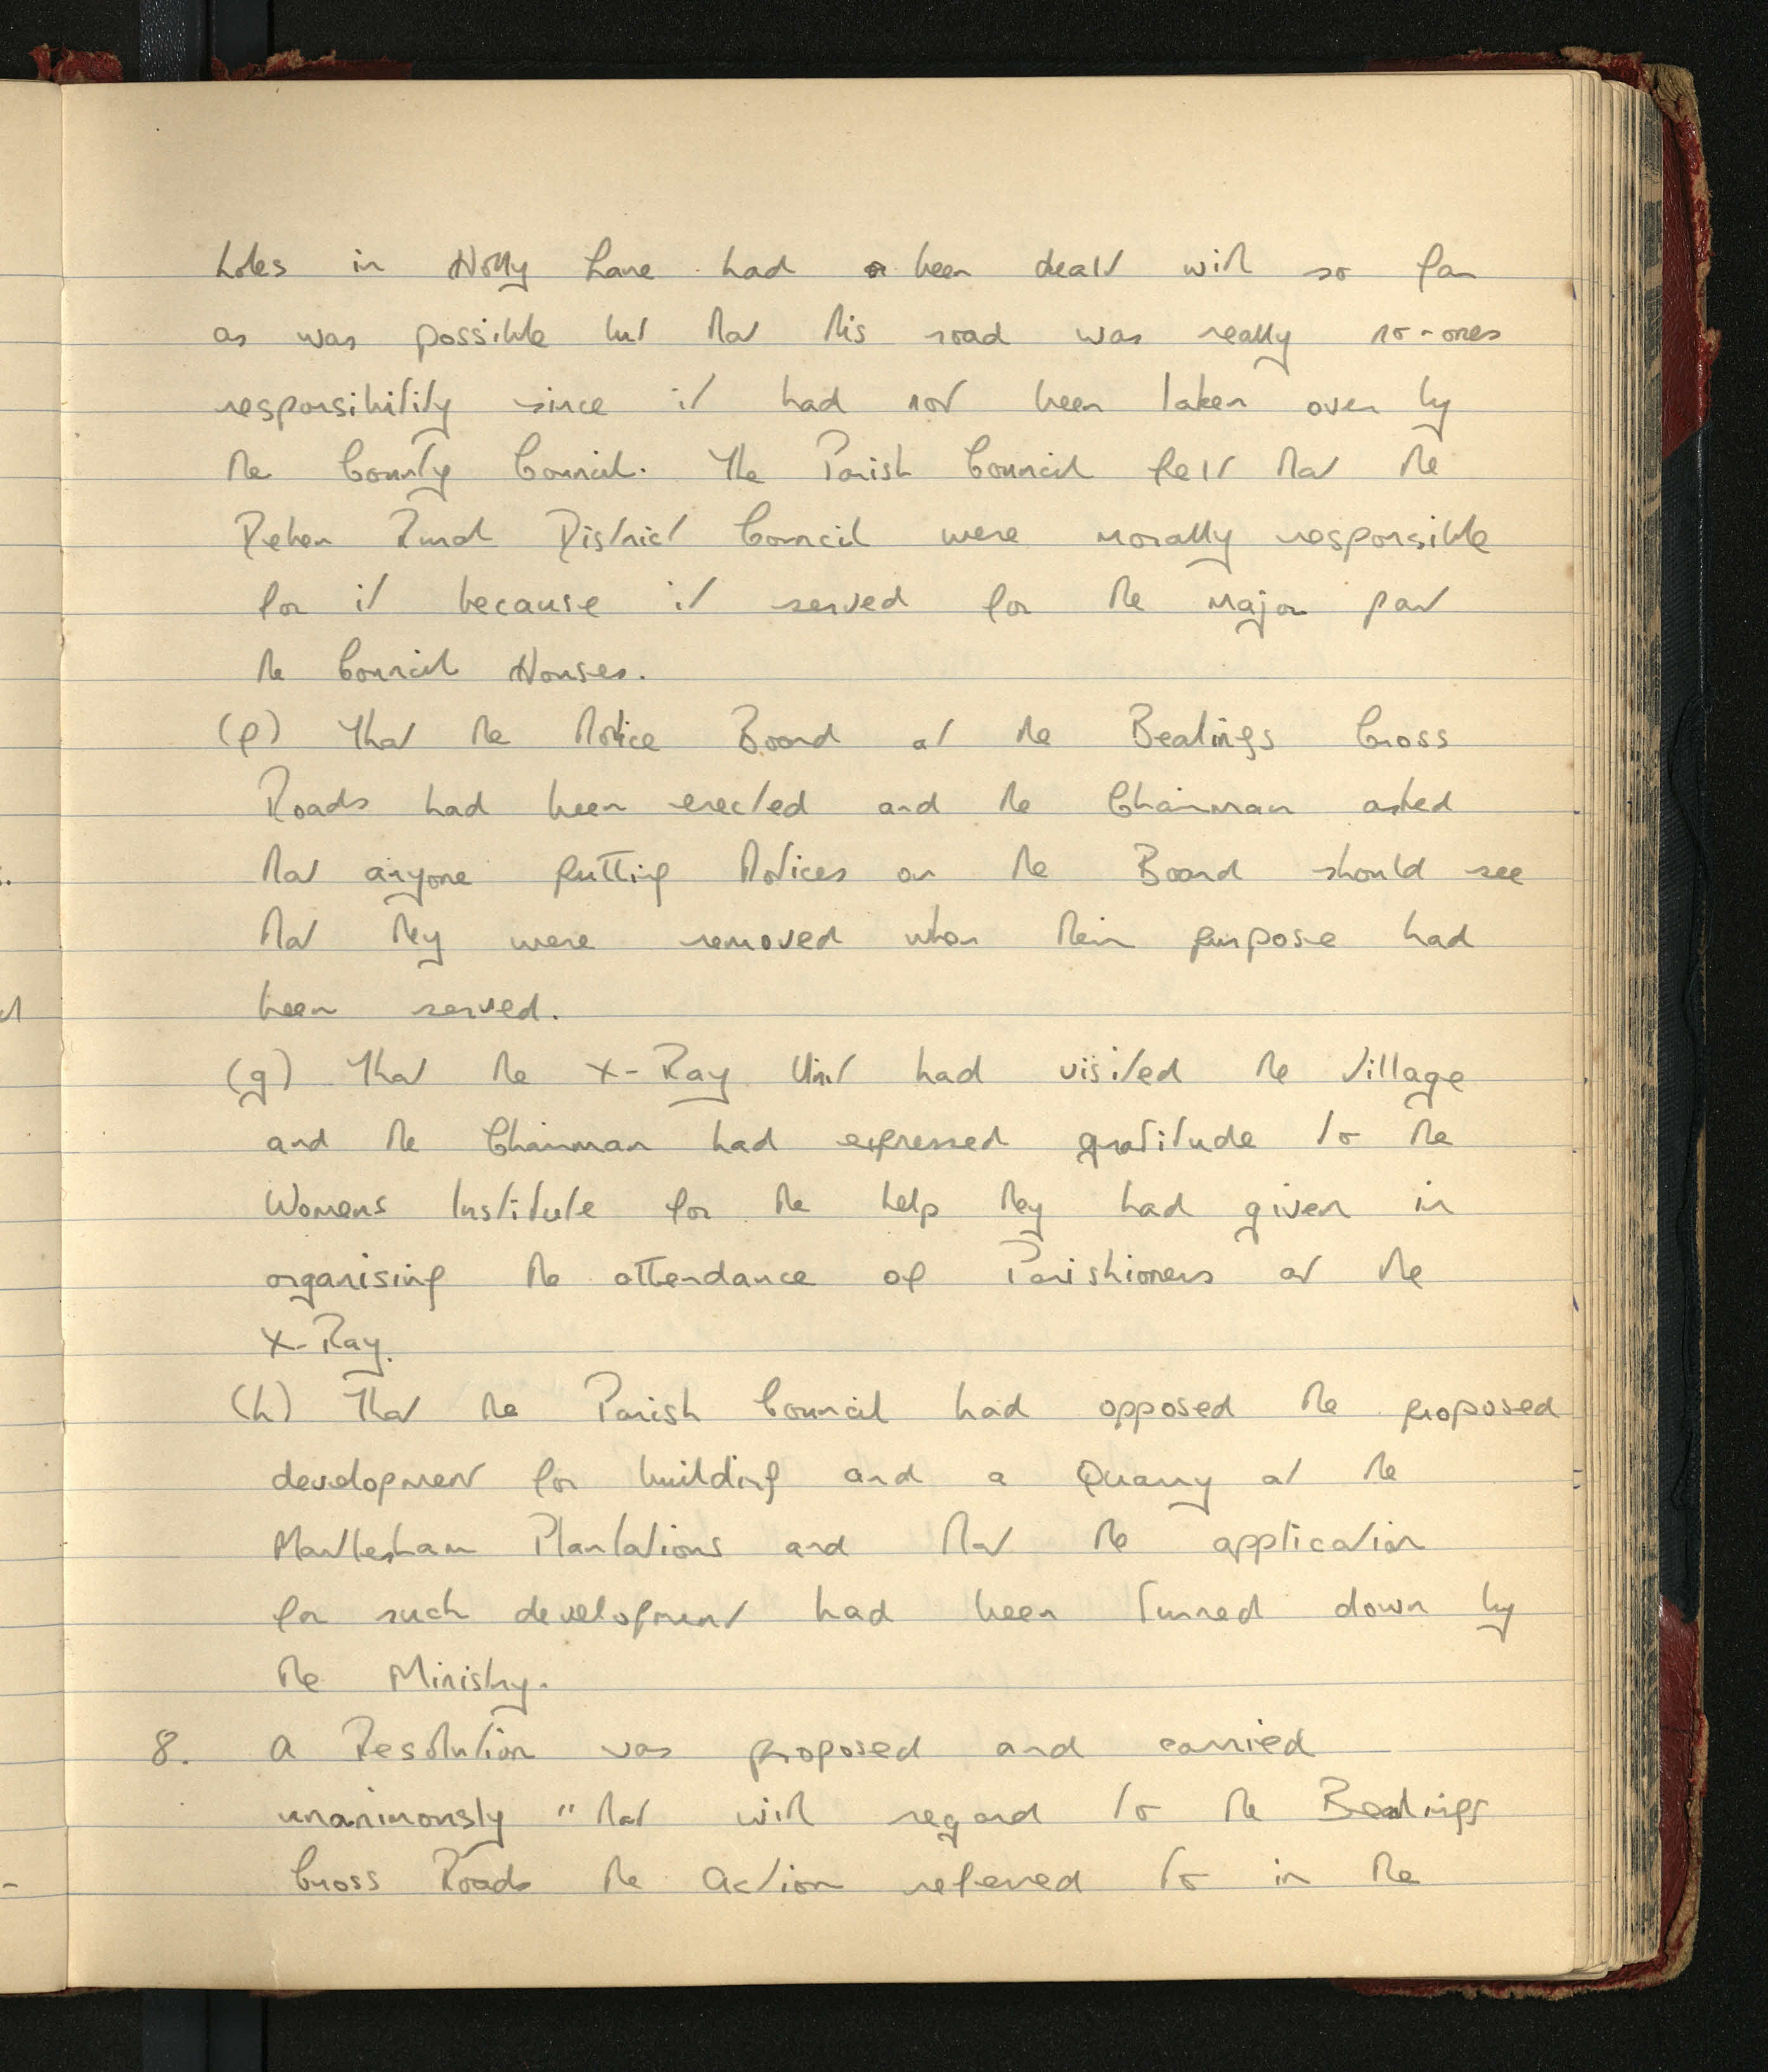 holes in Holly Lane had been dealt with so far
as was possible but that this road was really no-ones
responsibility since it had not been taken over by
the County Council. The Parish Council felt that the
Deben Rural District Council were morally responsible
for it because it served for the major part
the Council Houses.
(f) That the Notice Board at the Bealings Cross
Roads had been erected and the Chairman asked
that anyone putting Notices on the Board should see
that they were removed when their purpose had
been served.
(g) That the X-Ray Unit had visited the Village
and the Chairman had expressed gratitude to the
Womens Institute for the help they had given in
organising the attendance of Parishioners at the
X-Ray.
(h) That the Parish Council had opposed the proposed
development for building and a Quarry at the
Martlesham Plantations and that the application
for such development had been turned down by
the Ministry.
8. A Resolution was proposed and carried
unanimously "that with regard to the Bealings
Cross Roads the Action referred to in the